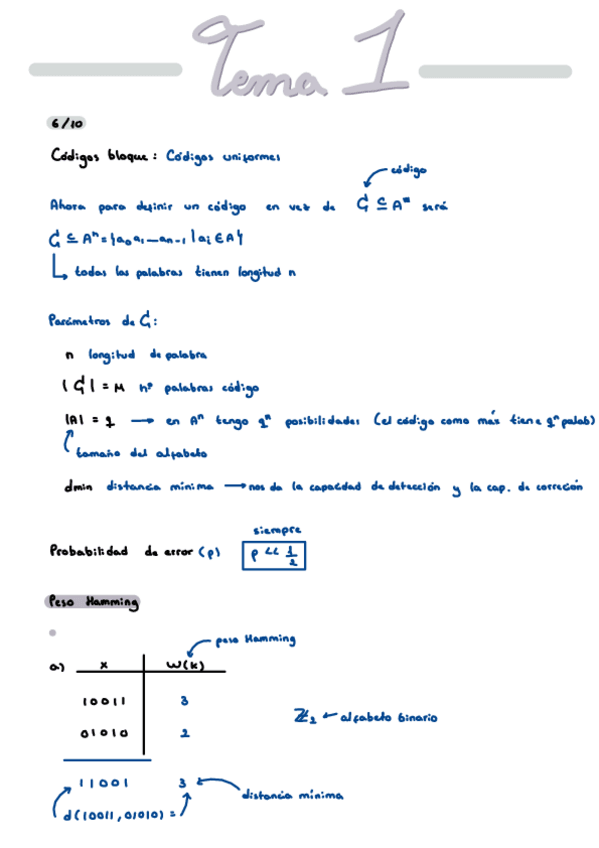 Tema 1
6/10
Códigos bloque: Códigos uniformes
código
Ahora para definir un código en vez de G ⊆ A* será
G ⊆ Aⁿ = {a₀a₁—aₙ₋₁ | aᵢ ∈ A}
todas las palabras tienen longitud n
Parámetros de G:
n longitud de palabra
|G| = M nº palabras código
|A| = q → en Aⁿ tengo qⁿ posibilidades (el código como más tiene qⁿ palab)
tamaño del alfabeto
dmin distancia mínima → nos da la capacidad de detección y la cap. de correción
siempre
Probabilidad de error (p) p << 1/2
Peso Hamming
peso Hamming
a) x W(k)
10011 3
ℤ₂ ← alfabeto binario
01010 2
11001 3
distancia mínima
d(10011,01010) =